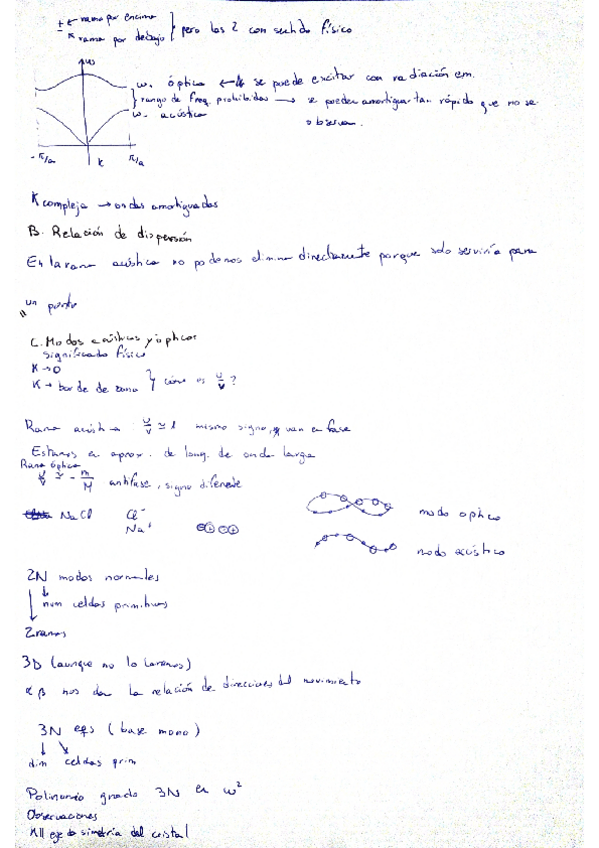 ± ↗ rama por encima
↘ rama por debajo } pero los 2 con sentido físico
ω
ω. óptica ↔ se puede excitar con radiación em.
} rango de freq. prohibidas → se pueden amortiguar tan rápido que no se observa.
ω. acústica
-π/a K π/a
K compleja → ondas amortiguadas
B. Relación de dispersión
En la rama acústica no podemos eliminar directamente porque solo serviría para
un punto
"
C. Modos acústicos y ópticos
significado físico
K→0
K→ borde de zona } cómo es u/v ?
Rama acústica u/v ≃ 1 mismo signo, van en fase
Estamos en aprox. de long. de onda larga
Rama óptica
u/v ≃ - m/M antifase, signo diferente
NaCl Cl⁻
Na⁺
modo optico
modo acústico
2N modos normales
↓ num celdas primitivas
2 ramas
3D (aunque no lo haremos)
α β nos dan la relación de direcciones del movimiento
3N eqs (base mono)
↓ ↘
dim celdas prim
Polinomio grado 3N en ω²
Observaciones
K || eje de simetría del cristal